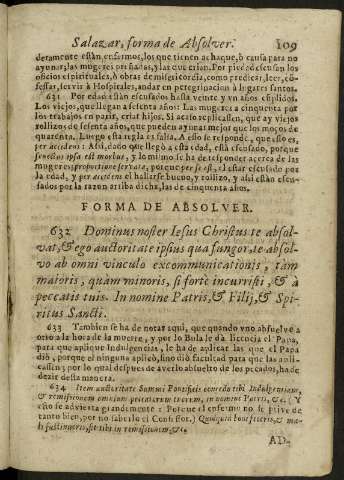 Salazar, forma de Absolver. 109
deramente estàn, enfermos, los que tienen achaque, ò causa para no
ayunar, las mugeres preñadas, y las que crian. Por piedad escusan los
oficios espirituales, ò obras de misericordia, como predicar, leer, cõ-
fessar, servir à Hospitales, andar en peregrinacion à lugares santos.
631 Por edad estàn escusados hasta veinte y vn años cũplidos.
Los viejos, que llegan a sesenta años: Las mugeres a cinquenta por
los trabajos en parir, criar hijos. Si acaso replicassen, que ay viejos
rollizos de sesenta años, que pueden ayunar mejor que los moços de
quarenta. Luego esta regla es falsa. A esto se responde, que esso es,
per accidens: Assi, dado que llegò a esta edad, està escusado, porque
senectus ipsa est morbus, y lo mismo se ha de responder acerca de las
mugeres, proportione servata, porque per se est, el estar escusado por
la edad, y per accidens el hallarse bueno, y rollizo, y assi estàn escu-
sados por la razon arriba dicha, las de cinquenta años.
FORMA DE ABSOLVER.
632 Dominus noster Iesus Christus te absol-
vat, & ego auctoritate ipsius qua fungor, te absol-
vo ab omni vinculo excommunicationis, tam
maioris, quàm minoris, si fortè incurristi, & à
peccatis tuis. In nomine Patris, & Filij, & Spi-
ritus Sancti.
633 Tambien se ha de notar aqui, que quando vno absuelve a
otro a la hora de la muerte, y por lo Bula le dà licencia el Papa,
para que aplique Indulgencia, le ha de aplicar las que el Papa
diò, porque el ninguna aplicò, sino diò facultad para que las apli-
cassen; por lo qual despues de averlo absuelto de los pecados, ha de
dezir desta manera.
634 Item auctoritate Summi Pontificis concedo tibi Indulgentiam,
& remissionem omnium peccatorum tuorum, in nomine Patris, &c. (Y
esto se advierta grandemente: Porque el enfermo no se prive de
tanto bien, por no saberlo el Confessor.) Quidquid boni feceris, & ma-
li sustinueris, sit tibi in remissionem, &c.
AD-